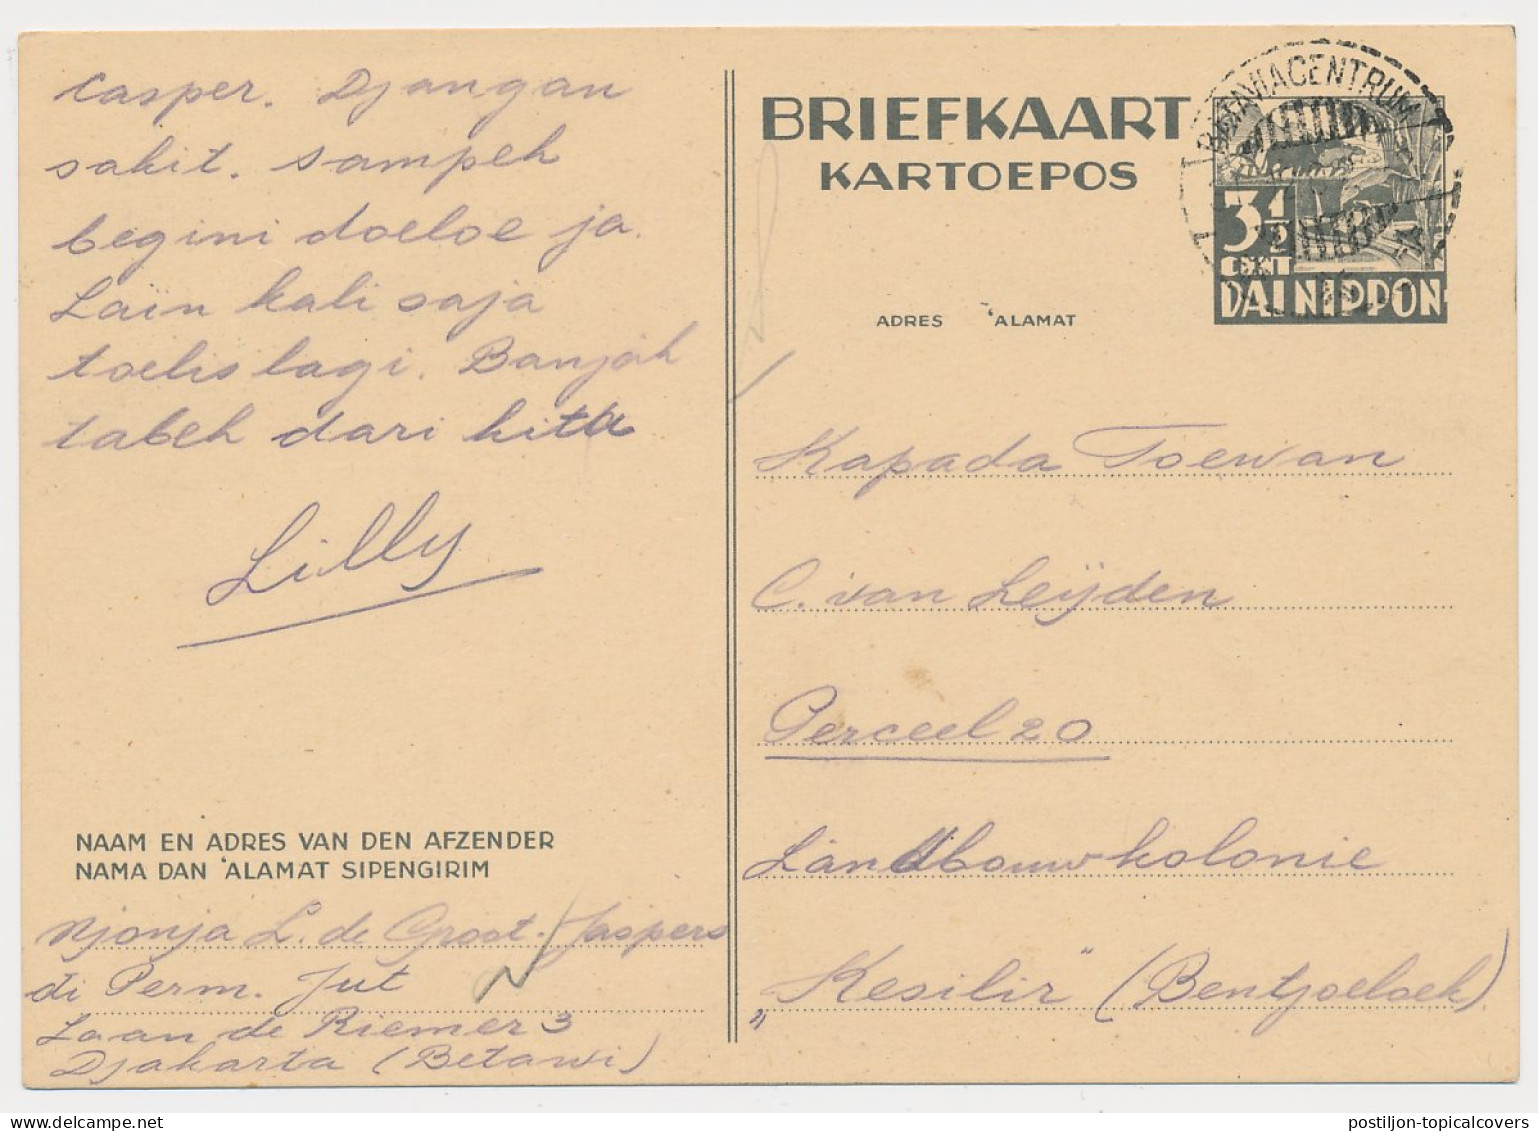 Casper. Djangan
sakit. Sampeh
begini doeloe ja.
Lain kali saja
toelis lagi. Banjak
tabeh dari kita
Lilly
NAAM EN ADRES VAN DEN AFZENDER
NAMA DAN 'ALAMAT SIPENGIRIM
Njonja L. de Groot-Jaspers
di Perm. Jut
Laan de Riemer 3
Djakarta (Betawi)
BRIEFKAART
KARTOEPOS
BATAVIACENTRUM
3½
CENT
DAI NIPPON
ADRES 'ALAMAT
Kapada Toewan
C. van Leijden
Perceel 20
Landbouwkolonie
"Kesilir" (Bentjoeloek)
postiljon-topicalcovers
delcampe.net